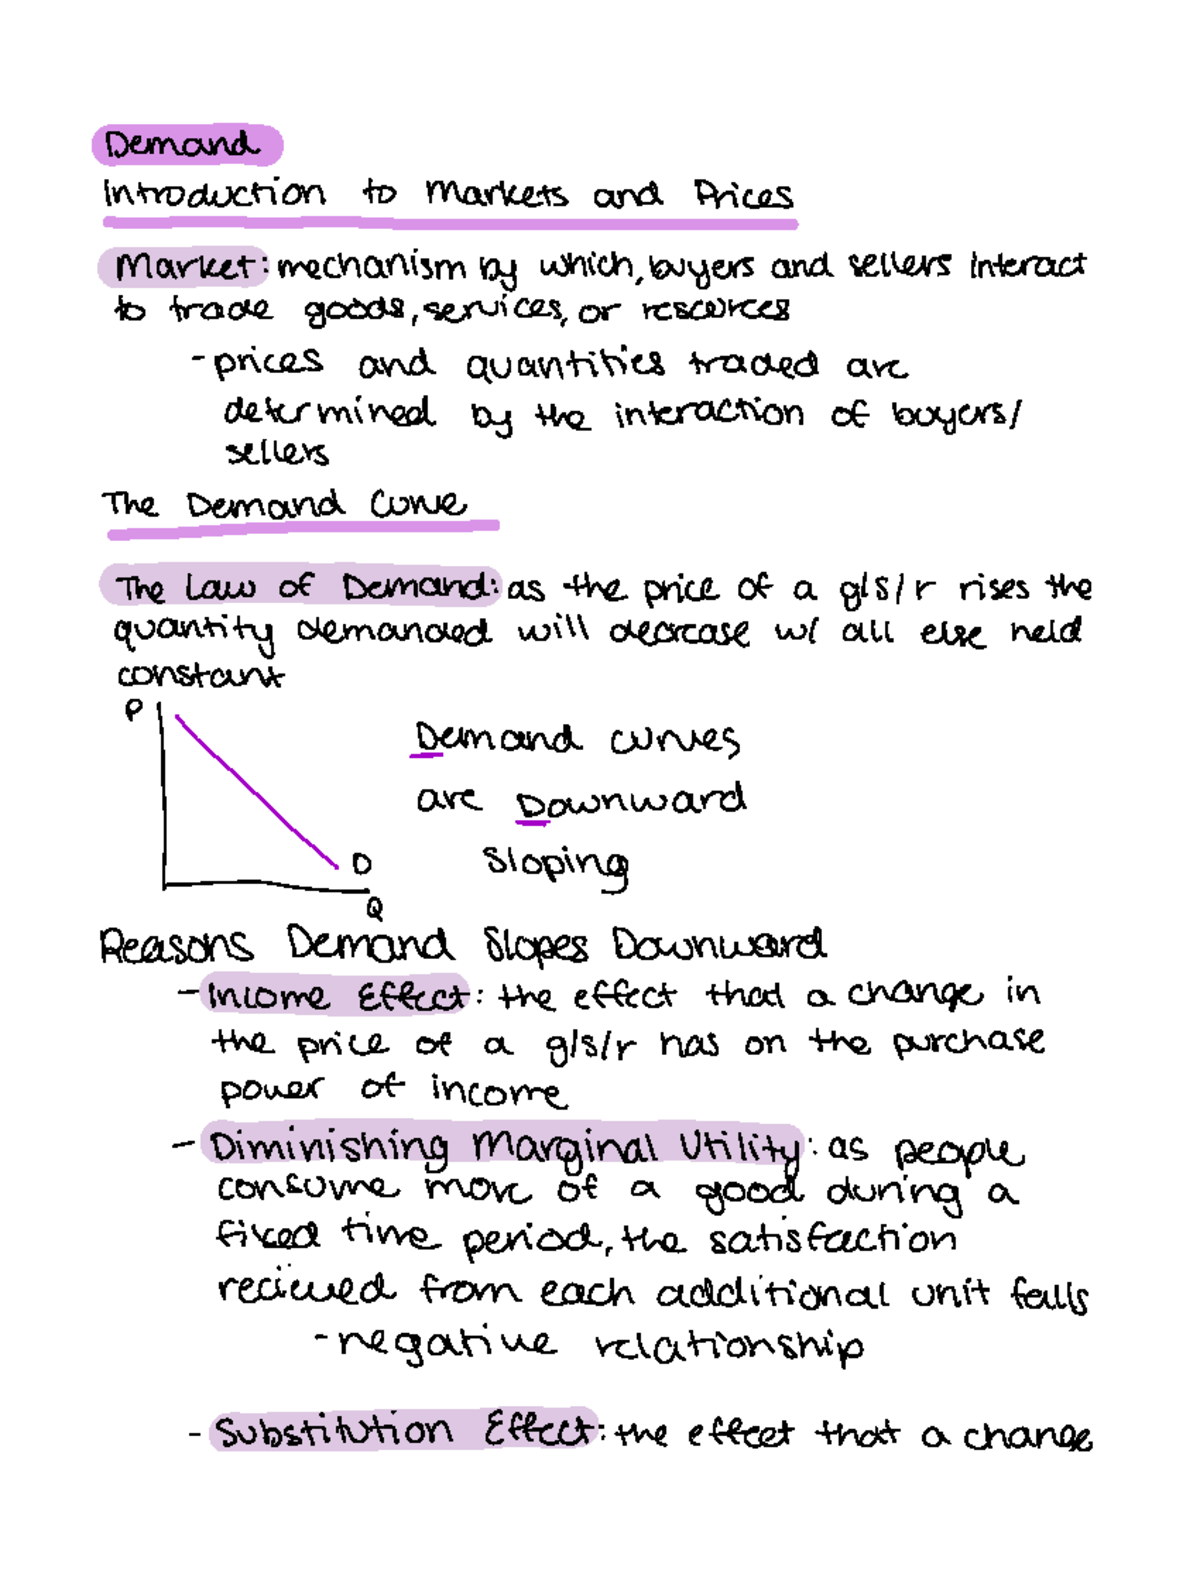 Demand
Introduction to Markets and Prices
Market: mechanism by which, buyers and sellers interact
to trade goods, services, or resources
- prices and quantities traded are
determined by the interaction of buyers/
sellers
The Demand Curve
The Law of Demand: as the price of a g/s/r rises the
quantity demanded will decrease w/ all else held
constant
P
Demand curves
are Downward
Sloping
D
Q
Reasons Demand Slopes Downward
- Income Effect: the effect that a change in
the price of a g/s/r has on the purchase
power of income
- Diminishing Marginal Utility: as people
consume more of a good during a
fixed time period, the satisfaction
recieved from each additional unit falls
- negative relationship
- Substitution Effect: the effect that a change